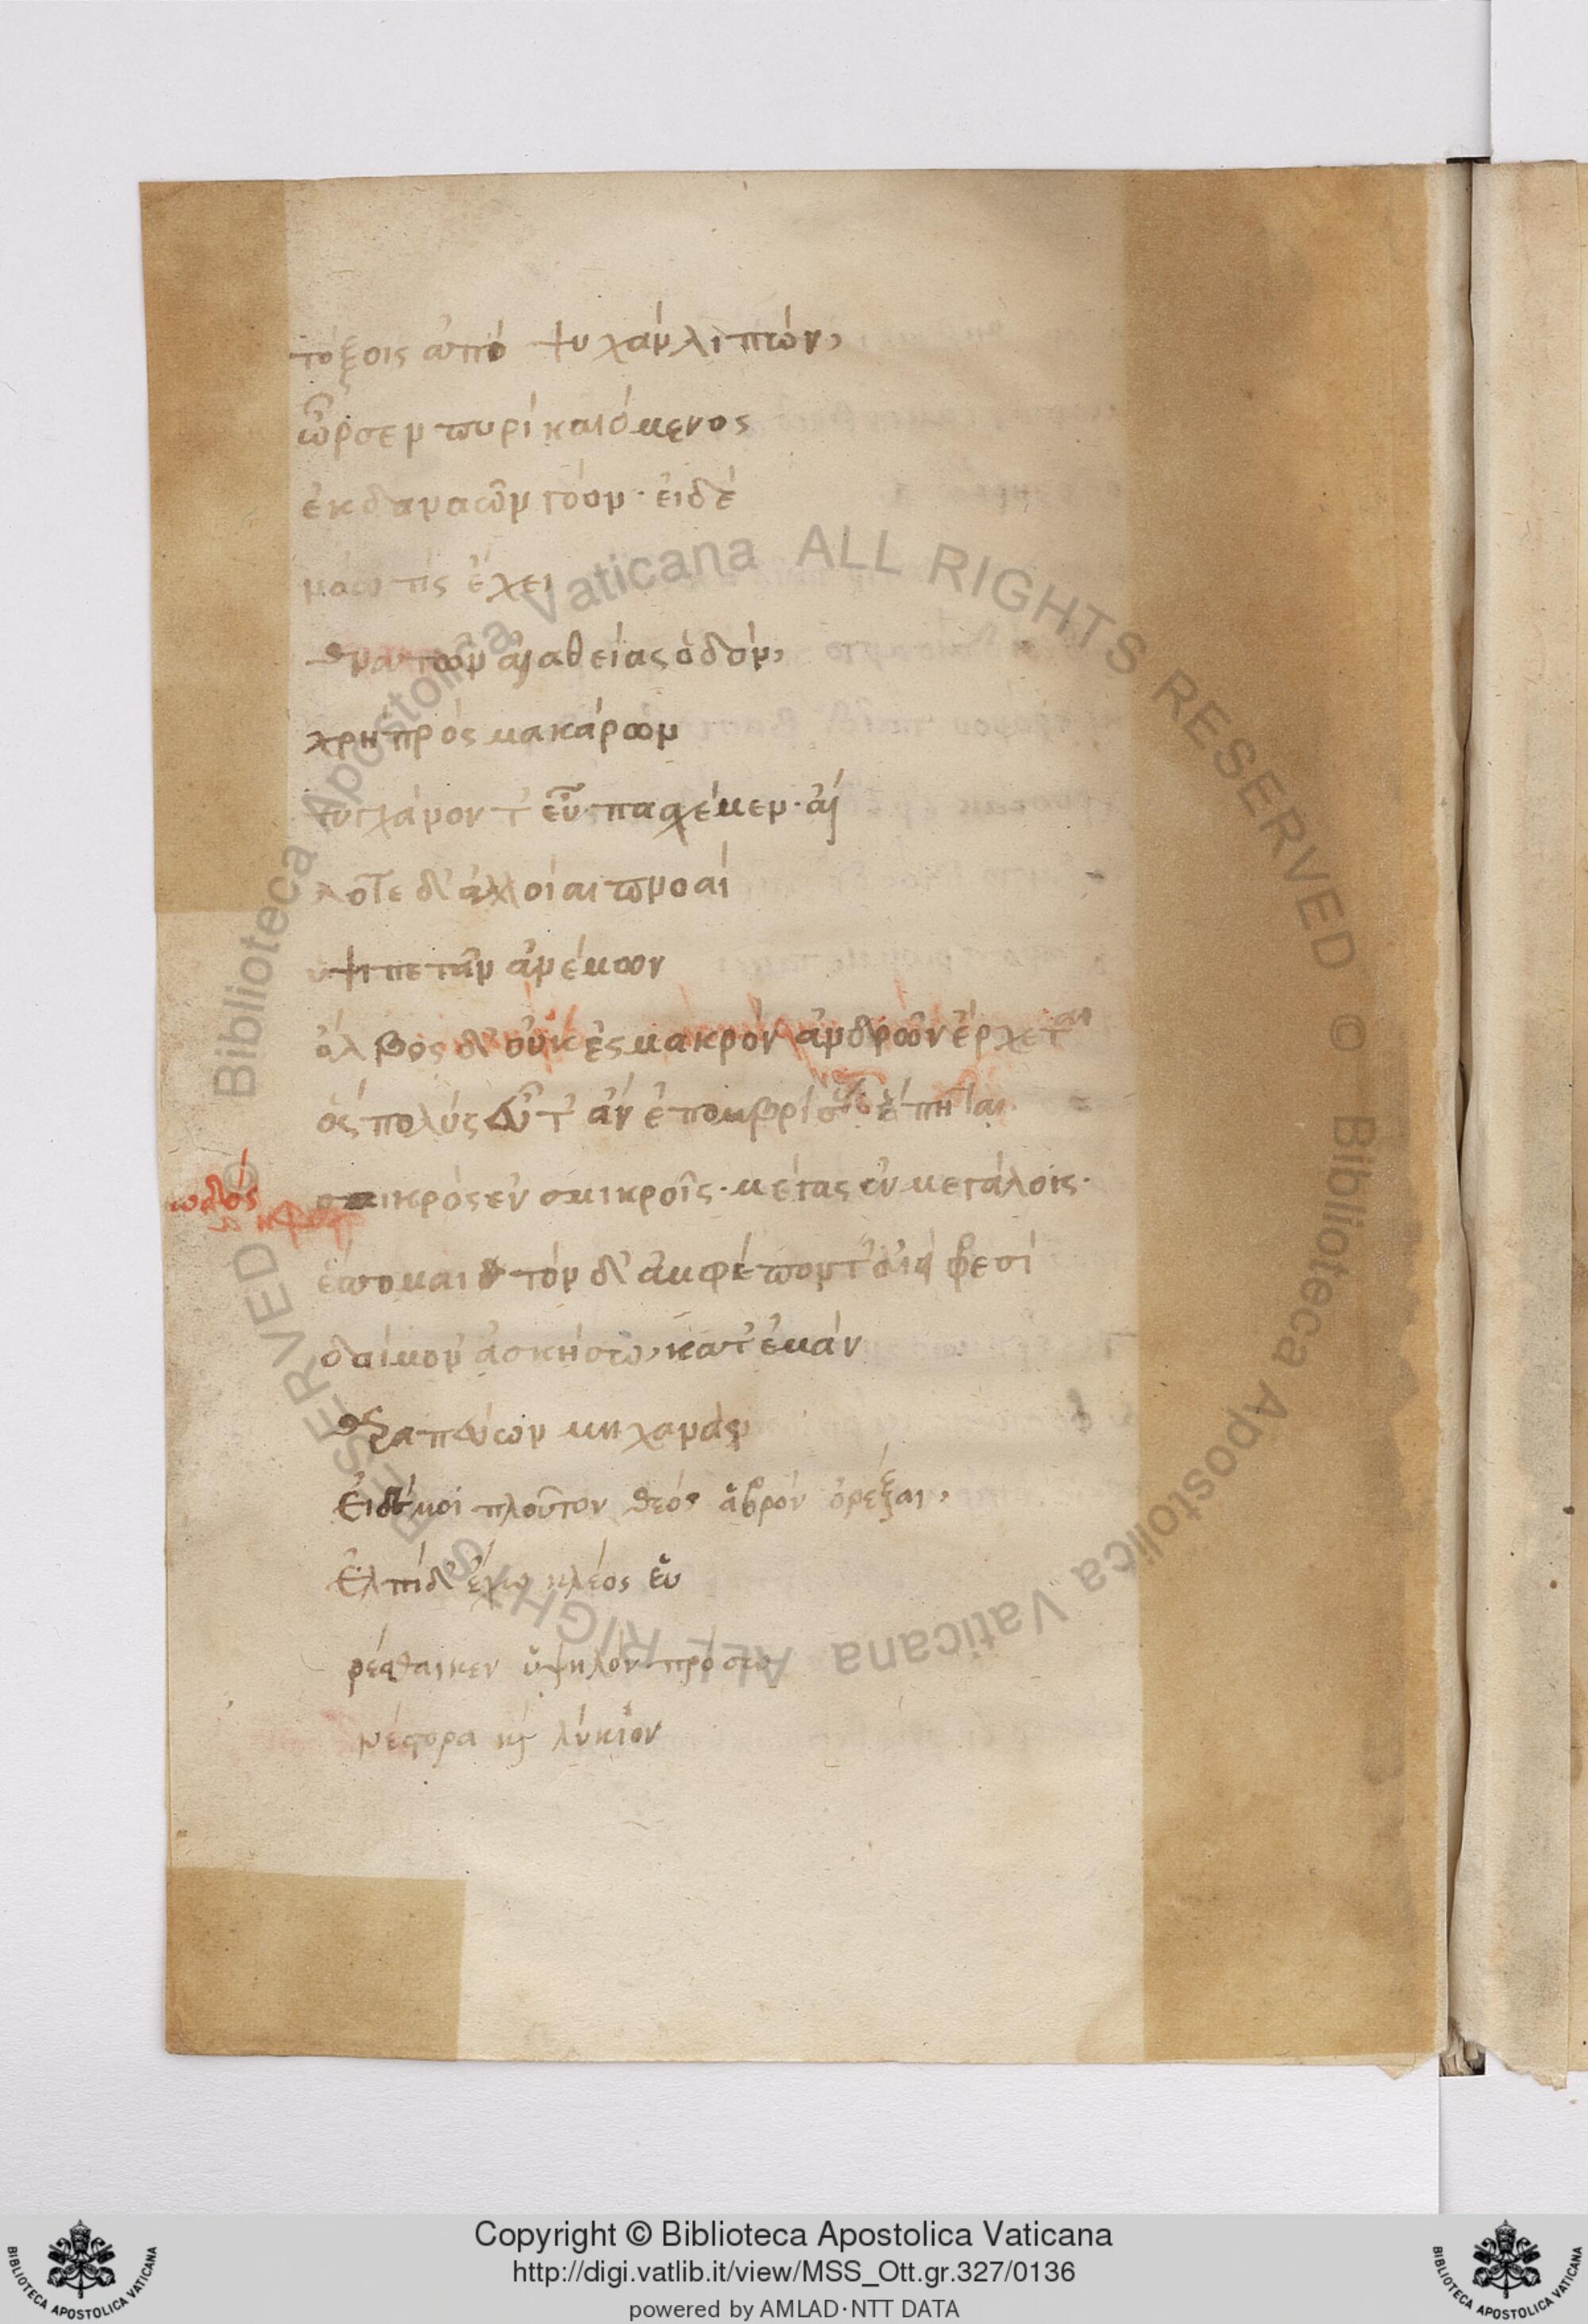 τόξοις ἀπὸ ψυχὰν λιπών,
ὦρσεν πυρὶ καιόμενος
ἐκ δαναῶν γόον· εἰ δὲ
νόῳ τις ἔχει
θνατῶν ἀλαθείας ὁδόν,
χρὴ πρὸς μακάρων
τυγχάνοντ' εὖ πασχέμεν· ἄλ
λοτε δ' ἀλλοῖαι πνοαὶ
ὑψιπετᾶν ἀνέμων
ὄλβος δ' οὐκ ἐς μακρὸν ἀνδρῶν ἔρχεται
ὃς πολὺς εὖτ' ἂν ἐπιβρίσαις ἕπηται.
σμικρὸς ἐν σμικροῖς· μέγας ἐν μεγάλοις·
ἔσσομαι τὸν δ' ἀμφέποντ' αἰεὶ φρεσὶ
δαίμον' ἀσκήσω, κατ' ἐμὰν
θεραπεύων μηχανάν
Εἰ δέ μοι πλοῦτον θεὸς ἁβρὸν ὀρέξαι,
Ἐλπίδ' ἔχω κλέος εὑ
ρέσθαι κεν ὑψηλὸν πρόσω
νέστορα καὶ λύκιον
Copyright © Biblioteca Apostolica Vaticana
http://digi.vatlib.it/view/MSS_Ott.gr.327/0136
powered by AMLAD·NTT DATA
BIBLIOTECA APOSTOLICA VATICANA
BIBLIOTECA APOSTOLICA VATICANA
© Biblioteca Apostolica Vaticana ALL RIGHTS RESERVED © Biblioteca Apostolica Vaticana ALL RIGHTS RESERVED